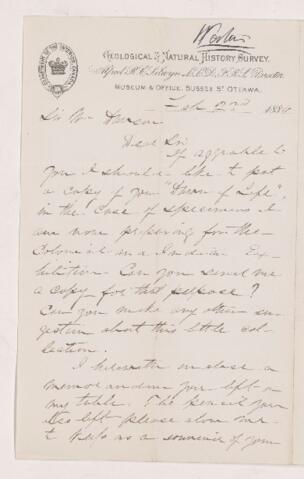 GEOLOGICAL & NATURAL HISTORY SURVEY.
Alfred R. C. Selwyn, L.L.D. F.R.S. Director
MUSEUM & OFFICE, SUSSEX ST OTTAWA.
Feb 2nd 188
Sir Wm Dawson
Dear Sir
If agreable to
you I should like to put
a copy of your "Dawn of Life",
in the case of specimens I
am now preparing for the
Colonial and Indian Ex-
hibition. Can you send me
a copy for that purpose?
Can you make any other sug-
gestion about this little col-
lection.
I herewith inclose a
memorandum you left on
my table. The pencil you
also left please allow me
to keep as a souvenir of your